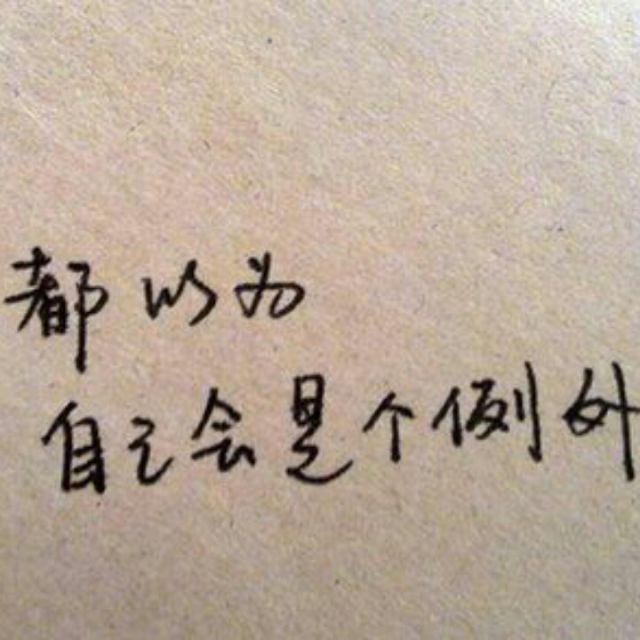 都以为
自己会是个例外